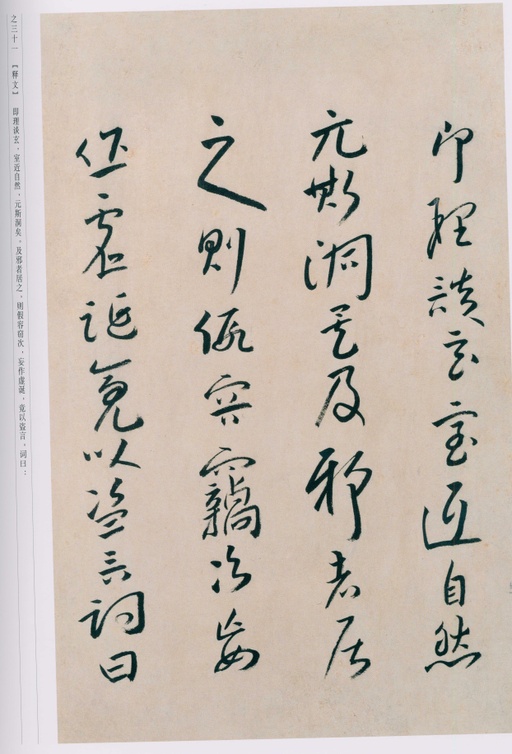 即理談玄室近自然
元斯洞矣及邪者居
之則假容竊次妄
作虛誕竟以盜言詞曰
之三十一 【释文】 即理谈玄，室近自然，元斯洞矣，及邪者居之，则假容窃次，妄作虚诞，竟以盗言，词曰：